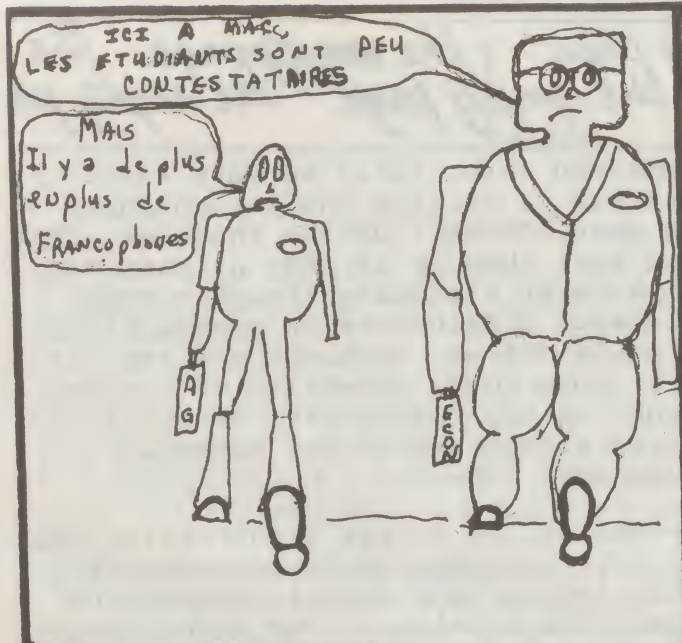 ICI A MAC,
LES ETUDIANTS SONT PEU
CONTESTATAIRES
MAIS
Il y a de plus
en plus de
FRANCOphones
AG
ECON